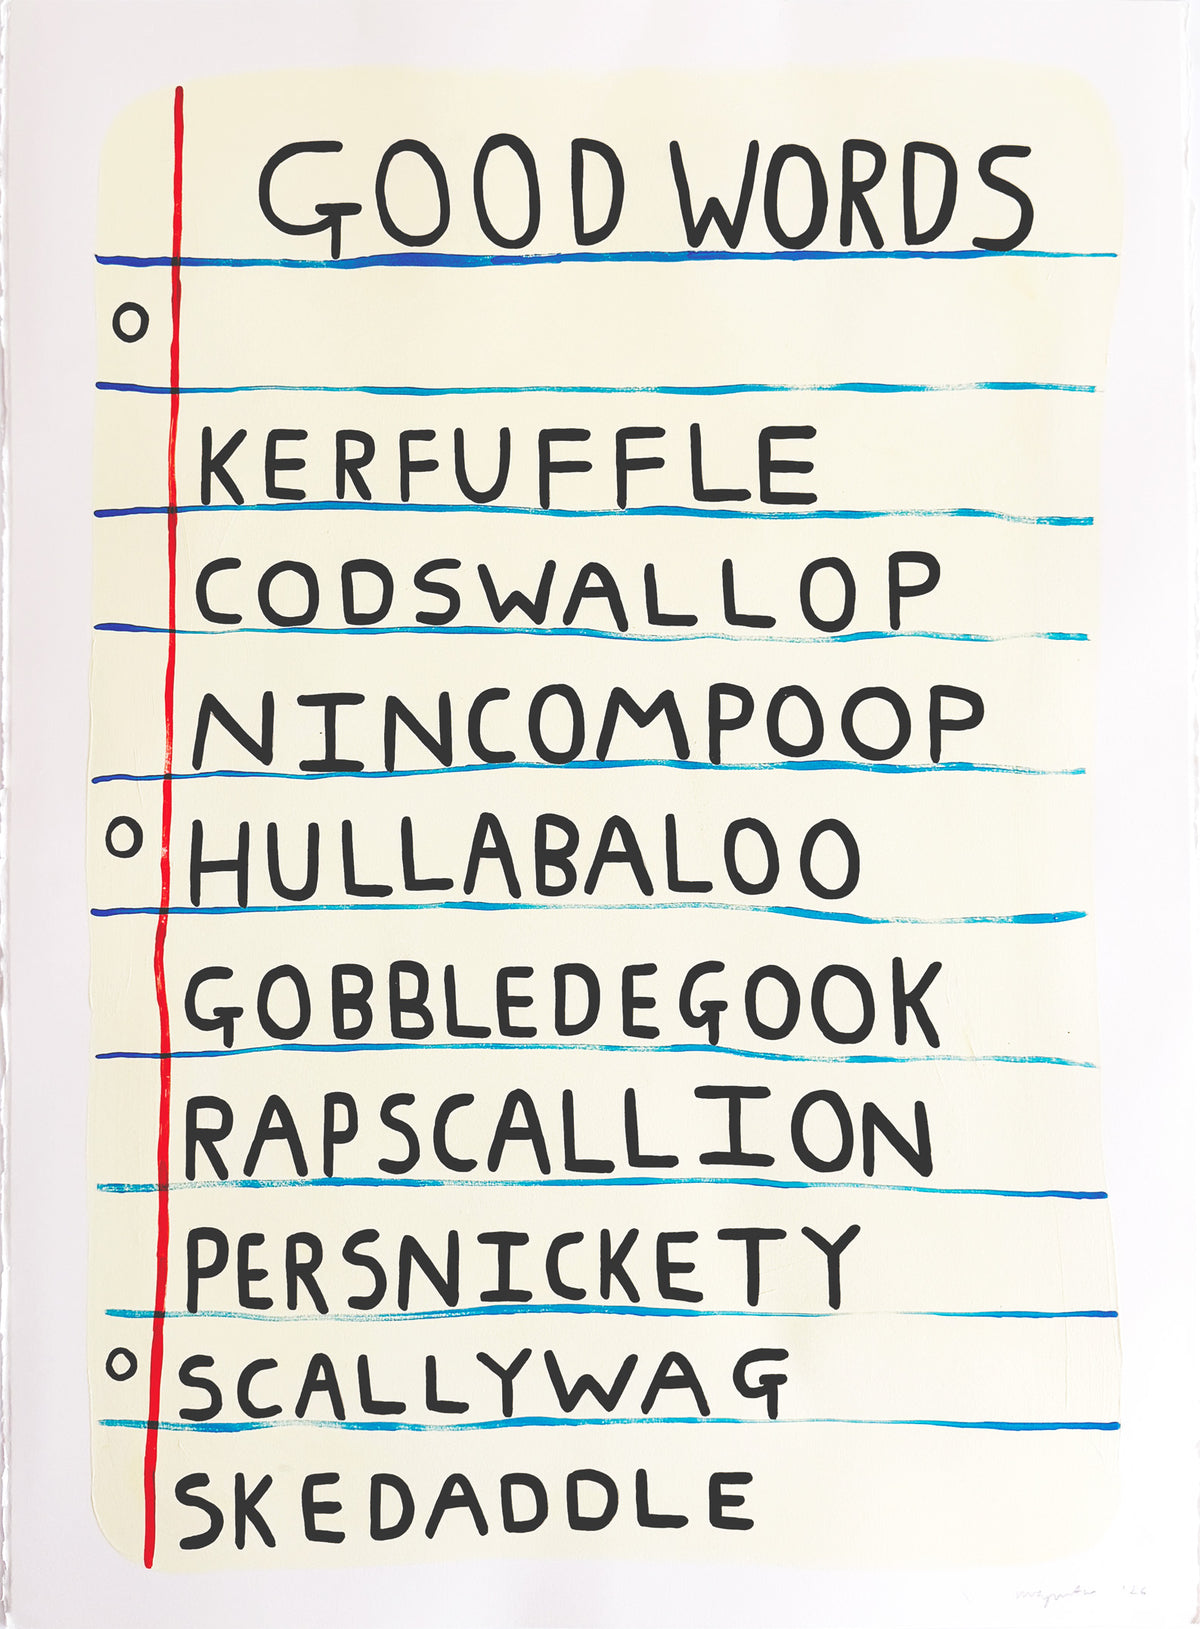 GOOD WORDS
KERFUFFLE
CODSWALLOP
NINCOMPOOP
HULLABALOO
GOBBLEDEGOOK
RAPSCALLION
PERSNICKETY
SCALLYWAG
SKEDADDLE
'26